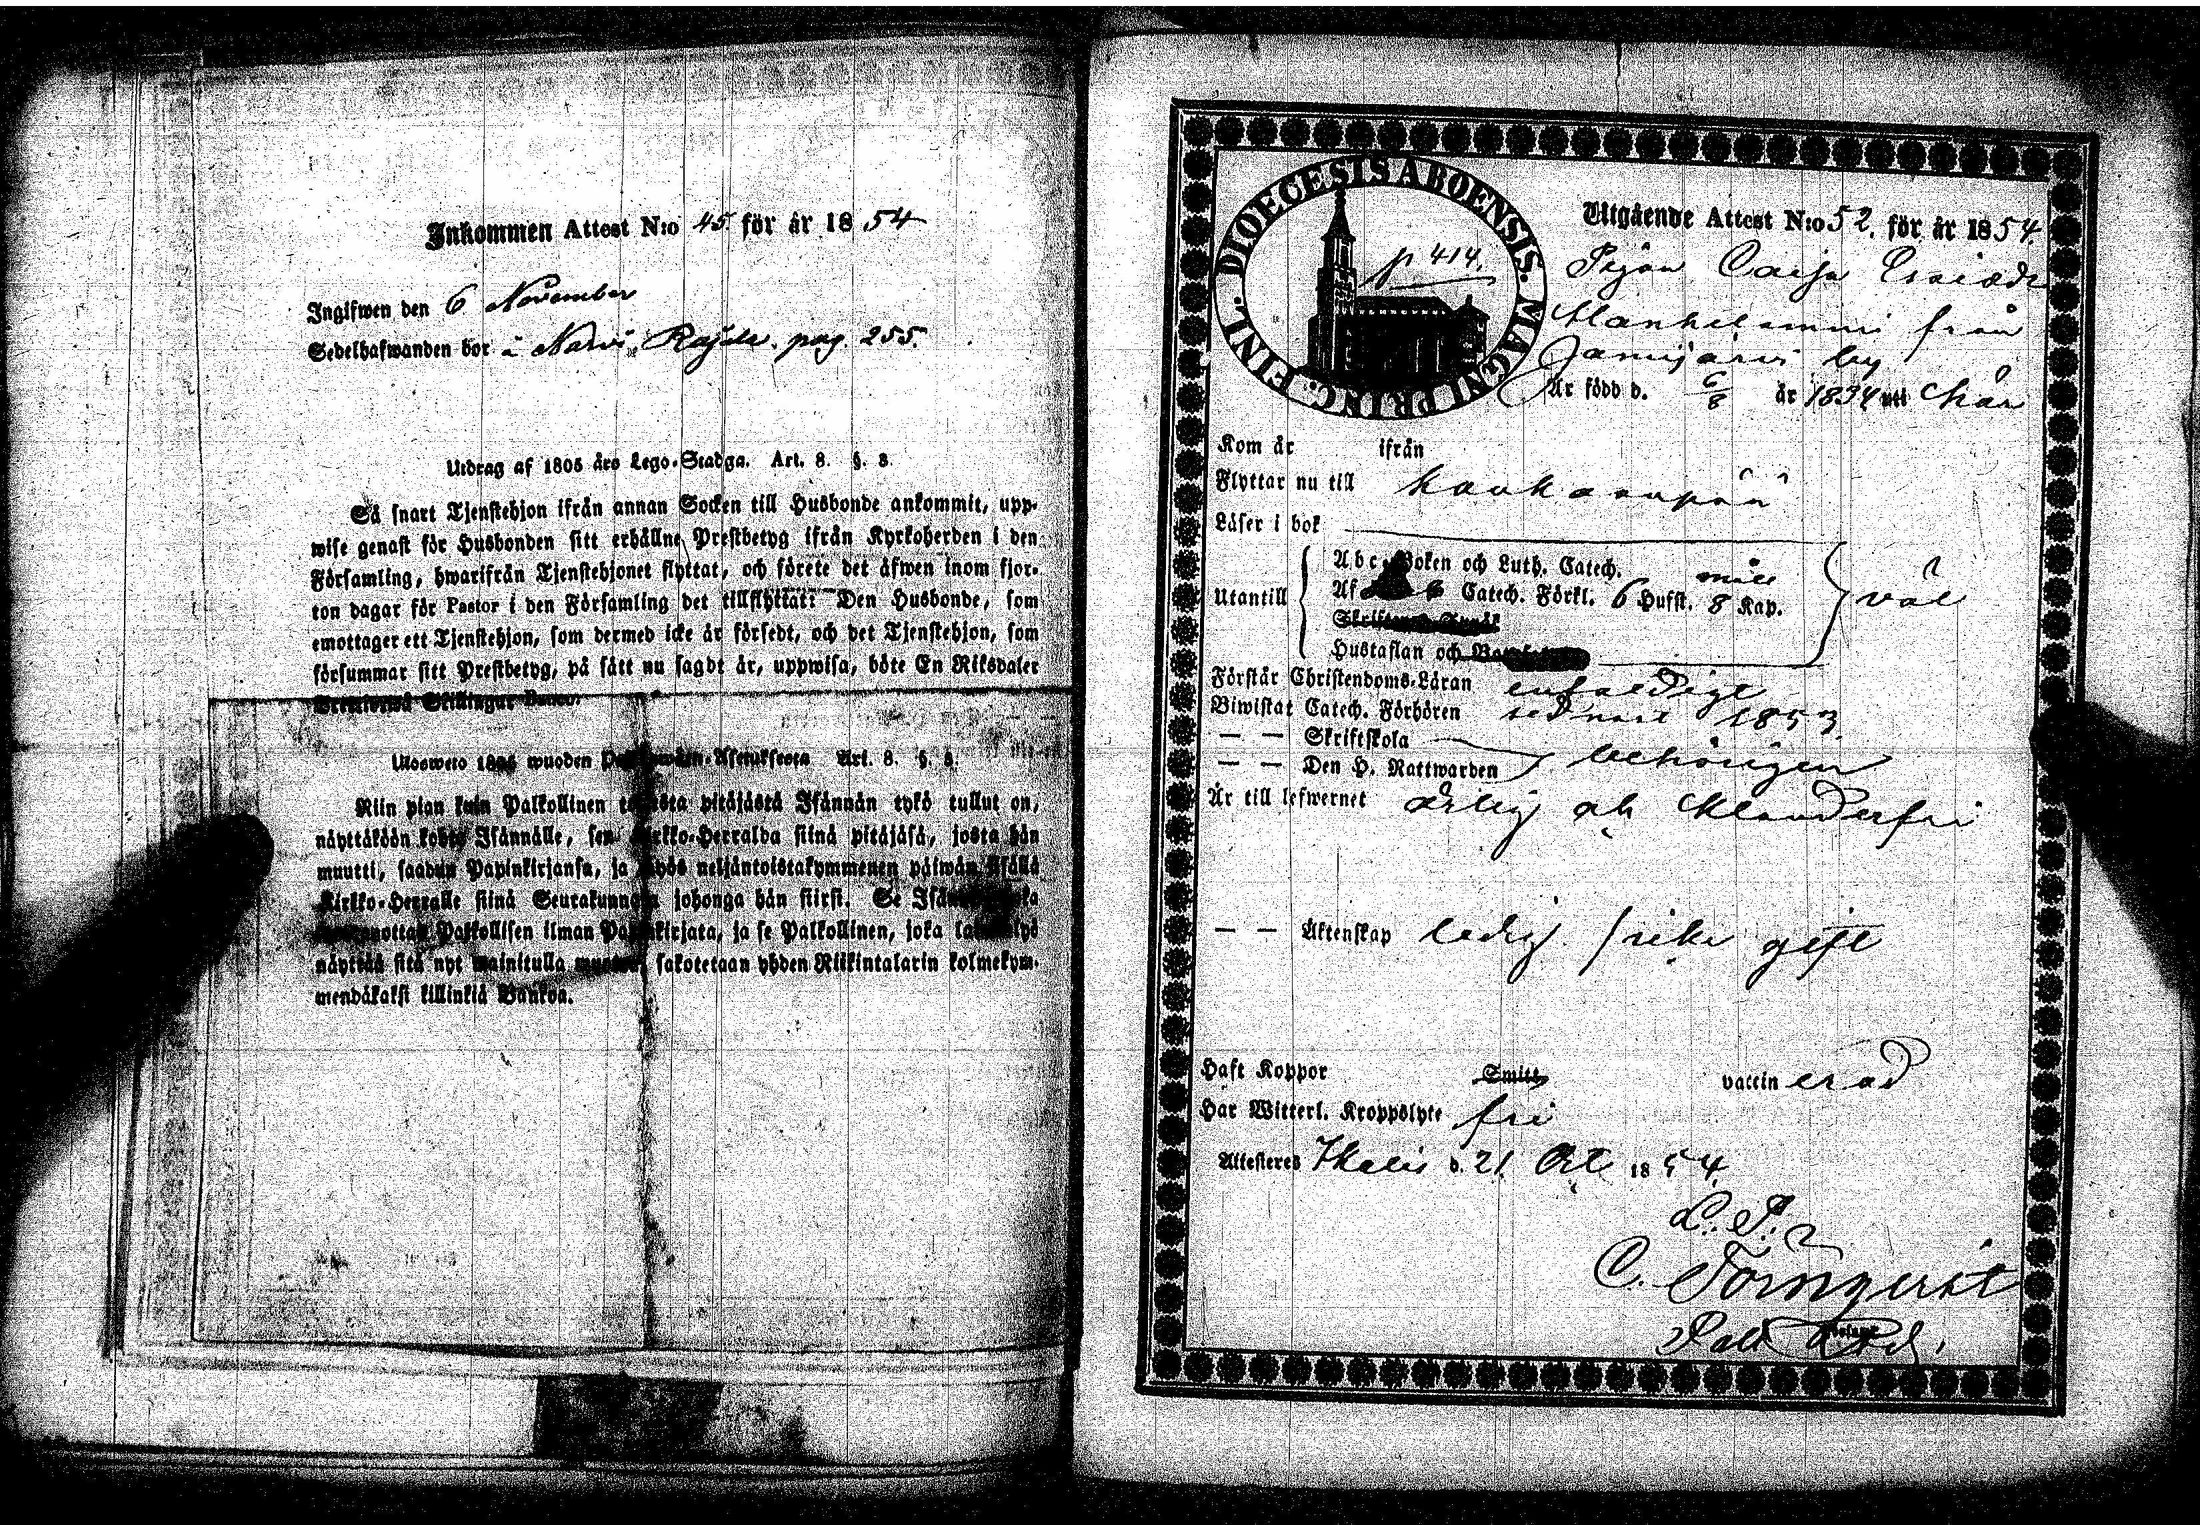 Inkommen Attest N:o 45. för år 1854
Ingifwen den 6 November
Sedelhafwanden bor i Narvi Rajala. pag. 255.
Utdrag af 1805 års Lego-Stadga. Art. 8. §. 3.
Så snart Tjenstehjon ifrån annan Socken till Husbonde ankommit, upp-
wise genast för Husbonden sitt erhållne Prestbetyg ifrån Kyrkoherden i den
Församling, hwarifrån Tjenstehjonet flyttat, och förete det äfwen inom fjor-
ton dagar för Pastor i den Församling det tillflyttat: Den Husbonde, som
emottager ett Tjenstehjon, som dermed icke är försedt, och det Tjenstehjon, som
försummar sitt Prestbetyg, på sätt nu sagdt är, uppwisa, böte En Riksdaler
Trettiotwå Skillingar Banco.
Ulosweto 1805 wuoden Palkowäen-Asetuksesta Art. 8. §. 3.
Niin pian kuin Palkollinen toisesta pitäjästä Isännän tykö tullut on,
näyttäköön kohta Isännälle, sen Kirkko-Herralda siinä pitäjäsä, josta hän
muutti, saadun Papinkirjansa, ja myös neljäntoistakymmenen päiwän sisällä
Kirkko-Herralle siinä Seurakunnasa johonga hän siirsi. Se Isändä, joka
wastaanottaa Palkollisen ilman Papinkirjata, ja se Palkollinen, joka laiminlyö
näyttää sitä nyt mainitulla muotoa, sakotetaan yhden Riikintalarin kolmekym-
mendäkaksi killinkiä Bankoa.
DIOECESIS ABOENSIS. MAGNI PRINC. FINL.
p 414.
Utgående Attest N:o 52. för år 1854.
Pigan Caisa
från
by
Är född d. 6/8 år 1834 uti
Kom år ifrån
Flyttar nu till Kankaanpää
Läser i bok
Utantill
Abc-Boken och Luth. Catech.
Af Catech. Förkl. 6 Hufst. 8 Kap.
väl
Hustaflan och
Förstår Christendoms-Läran enfaldigt
Biwistat Catech. Förhören sednast 1853.
— — Skriftskola
— — Den H. Nattwarden behörigen
Är till lefwernet ärlig och klanderfri
— — Äktenskap ledig. icke gift
Haft Koppor Smitt vaccinerad
Har Witterl. Kroppslyte fri
Attesteres Ikalis d. 21 Oct 1854.
C. Törnqvist